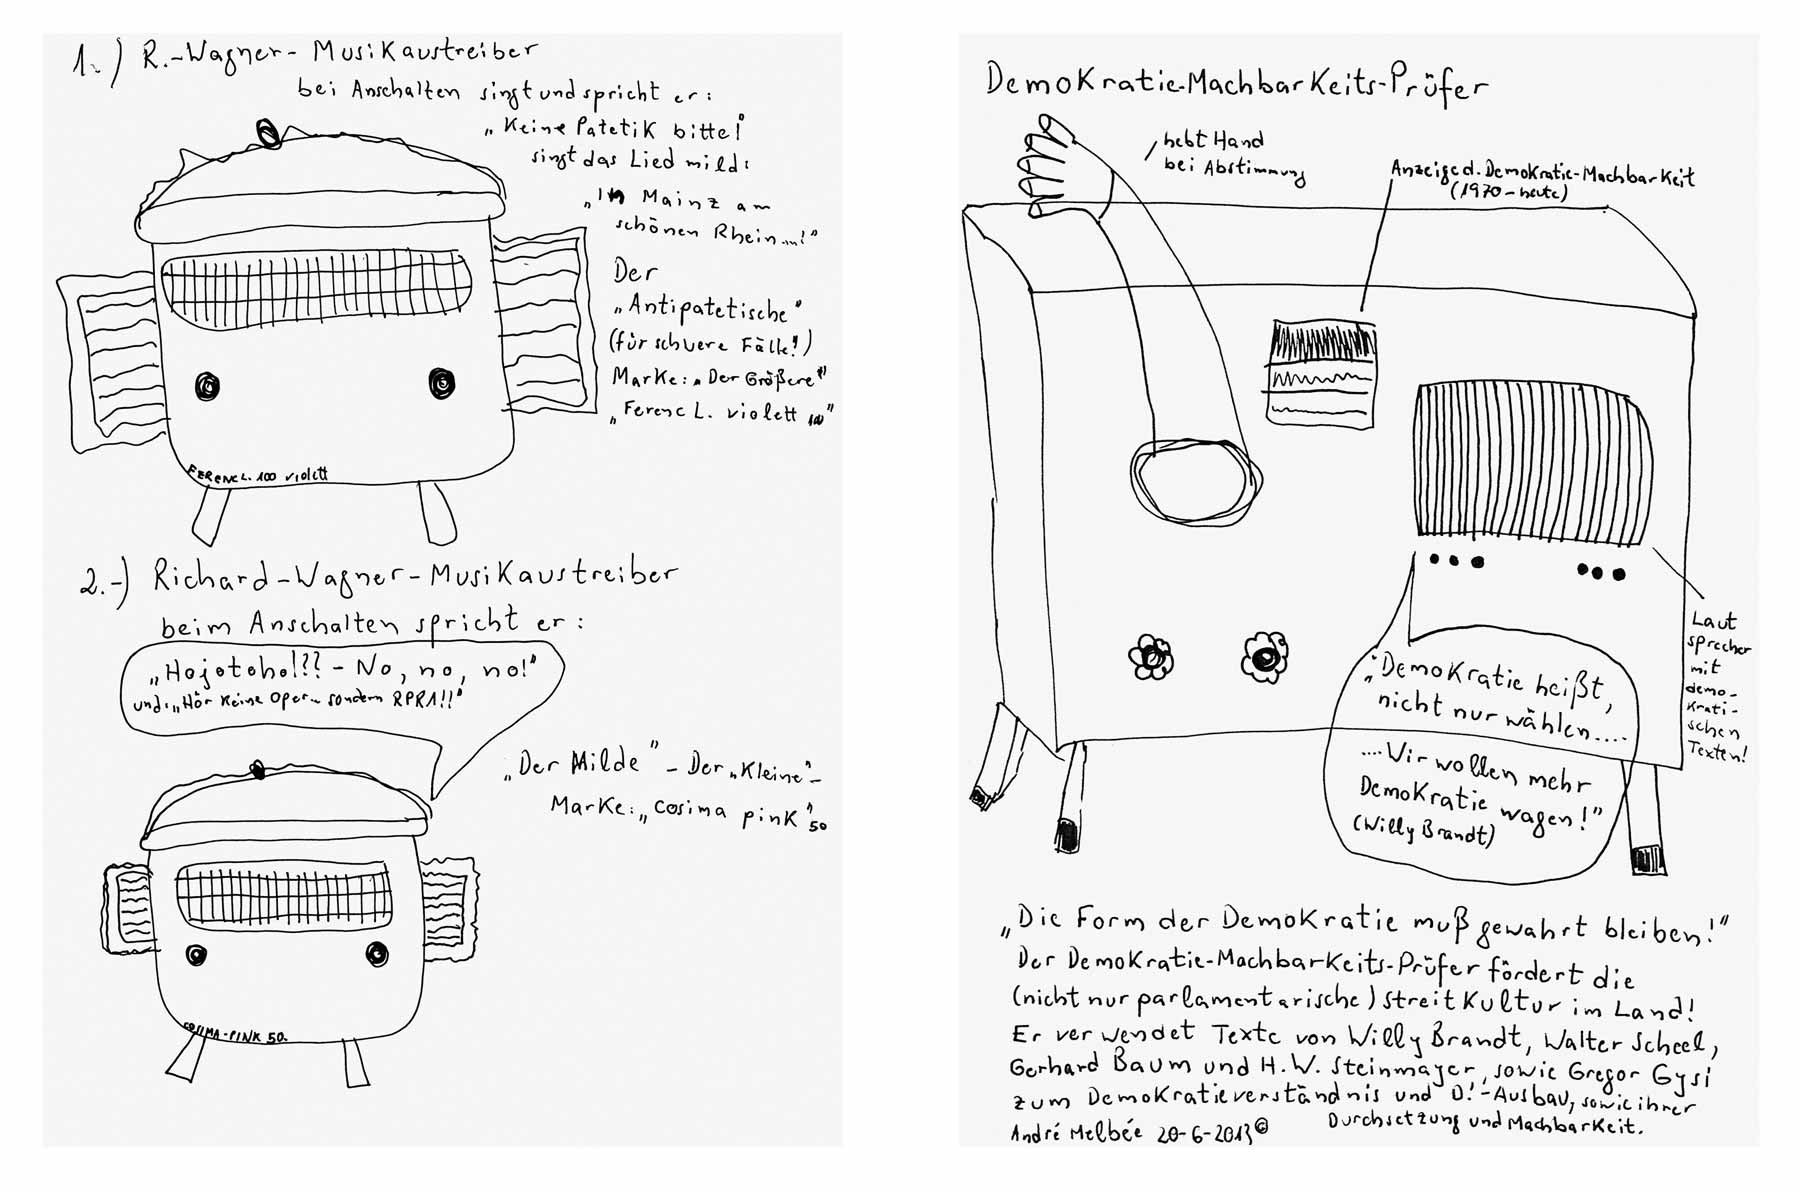 1.) R.-Wagner-Musikaustreiber
bei Anschalten singt und spricht er:
„Keine Patetik bitte!
singt das Lied mild:
„In Mainz am
schönen Rhein...!"
Der
„Antipatetische"
(für schwere Fälle!)
Marke: „Der Größere"
„Ferenc L. violett 100"
FERENC L. 100 violett
2.-) Richard-Wagner-Musikaustreiber
beim Anschalten spricht er:
„Hojotoho!?? - No, no, no!"
und: „Hör keine Oper... sondern RPR1!!"
„Der Milde" - Der „Kleine" -
Marke: „Cosima pink" 50
COSIMA-PINK 50.
Demokratie-Machbarkeits-Prüfer
hebt Hand
bei Abstimmung
Anzeige d. Demokratie-Machbarkeit
(1970-heute)
Laut
sprecher
mit
demo-
krati-
schen
Texten!
„Demokratie heißt,
nicht nur wählen....
....Wir wollen mehr
Demokratie wagen!"
(Willy Brandt)
„Die Form der Demokratie muß gewahrt bleiben!"
Der Demokratie-Machbarkeits-Prüfer fördert die
(nicht nur parlamentarische) Streitkultur im Land!
Er verwendet Texte von Willy Brandt, Walter Scheel,
Gerhard Baum und H.W. Steinmayer, sowie Gregor Gysi
zum Demokratieverständnis und D!-Ausbau, sowie ihrer
Durchsetzung und Machbarkeit.
André Melbée 20-6-2013©